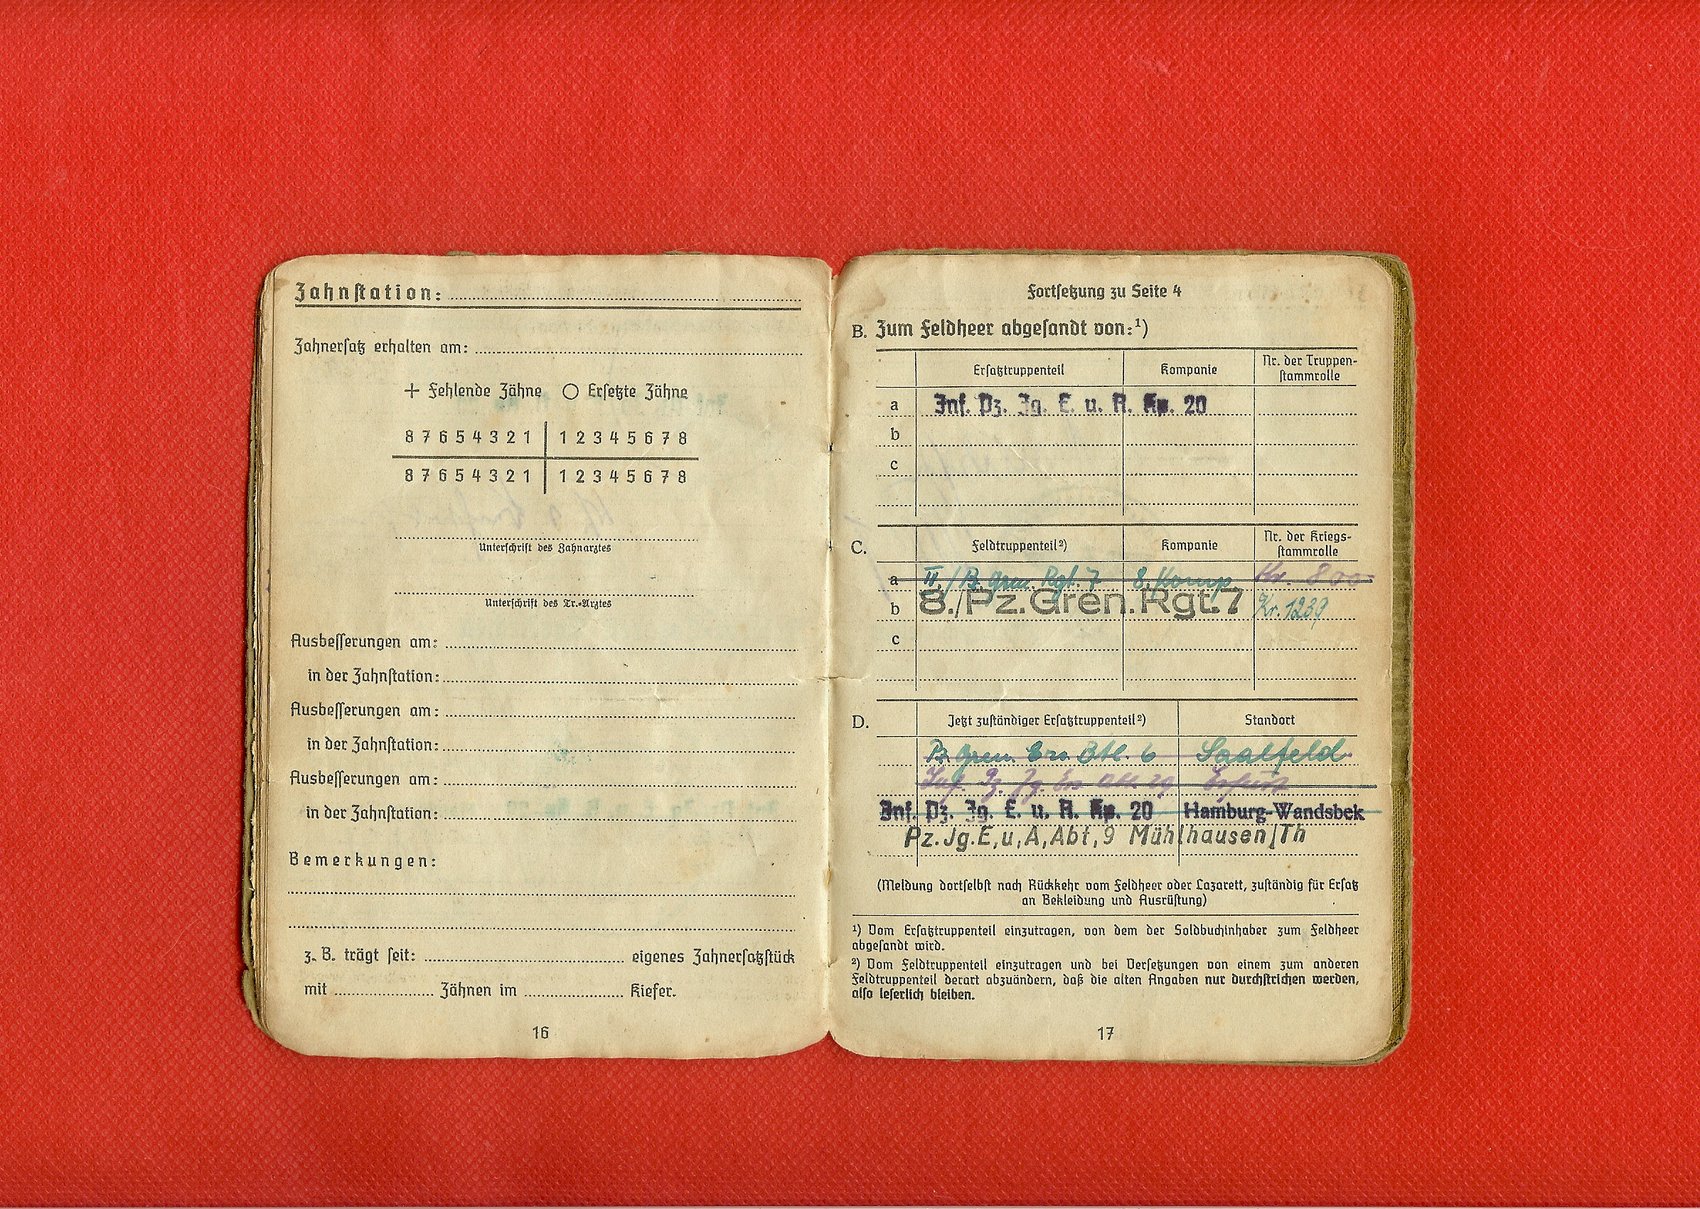 Zahnstation:
Zahnersatz erhalten am:
+ Fehlende Zähne ○ Ersetzte Zähne
8 7 6 5 4 3 2 1 | 1 2 3 4 5 6 7 8
8 7 6 5 4 3 2 1 | 1 2 3 4 5 6 7 8
Unterschrift des Zahnarztes
Unterschrift des Tr.-Arztes
Ausbesserungen am:
in der Zahnstation:
Ausbesserungen am:
in der Zahnstation:
Ausbesserungen am:
in der Zahnstation:
Bemerkungen:
z. B. trägt seit: eigenes Zahnersatzstück
mit Zähnen im Kiefer.
16
Fortsetzung zu Seite 4
B. Zum Feldheer abgesandt von:¹)
Ersatztruppenteil Kompanie Nr. der Truppen-
stammrolle
a Inf. Pz. Jg. E. u. A. Kp. 20
b
c
C. Feldtruppenteil²) Kompanie Nr. der Kriegs-
stammrolle
a II./Pz. Gren. Rgt. 7 8. Komp Kr. 800
b 8./Pz.Gren.Rgt.7 Kr. 1239
c
D. Jetzt zuständiger Ersatztruppenteil²) Standort
Pz. Gren. Ers. Btl. 6 Saalfeld
Inf. Pz. Jg. Ers Abt 29 Erfurt
Inf. Pz. Jg. E. u. A. Kp. 20 Hamburg-Wandsbek
Pz.Jg.E,u,A,Abt,9 Mühlhausen/Th
(Meldung dortselbst nach Rückkehr vom Feldheer oder Lazarett, zuständig für Ersatz
an Bekleidung und Ausrüstung)
¹) Vom Ersatztruppenteil einzutragen, von dem der Soldbuchinhaber zum Feldheer
abgesandt wird.
²) Vom Feldtruppenteil einzutragen und bei Versetzungen von einem zum anderen
Feldtruppenteil derart abzuändern, daß die alten Angaben nur durchstrichen werden,
also leserlich bleiben.
17